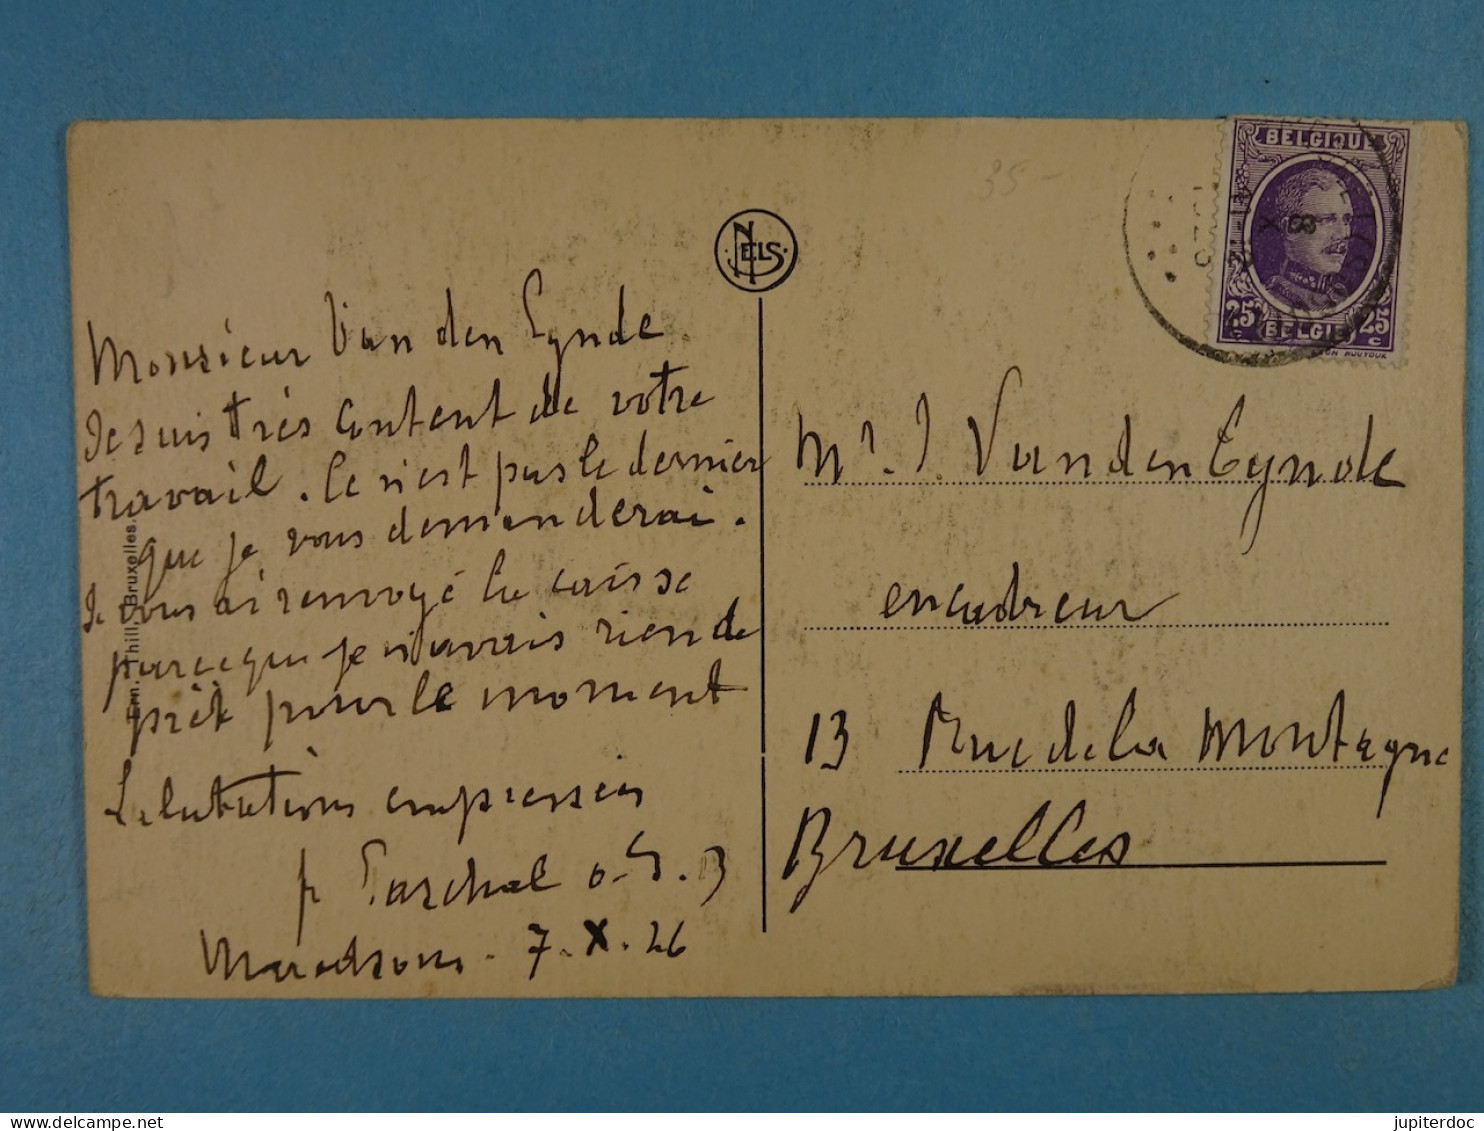 35-
NELS
BELGIQUE
8
X
25 25
BELGIE
Monsieur Van den Eynde
Je suis très content de votre
travail. Ce n'est pas le dernier
que je vous demanderai.
Je vous ai renvoyé la caisse
parceque je n'avais rien de
prêt pour le moment
Salutations empressées
p. Paschal o.S.B
Maredsous - 7.X.26
Mr. J. Van den Eynde
encadreur
13 Rue de la Montagne
Bruxelles
Thill, Bruxelles.
jupiterdoc